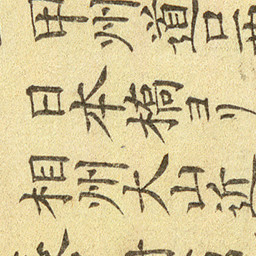 甲州道
日本橋ヨリ
相州大山近